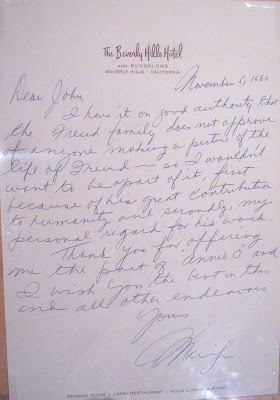 The Beverly Hills Hotel
AND BUNGALOWS
BEVERLY HILLS · CALIFORNIA
November 5, 1960
Dear John,
I have it on good authority that
the Freud family does not approve
of anyone making a picture of the
life of Freud — so I wouldn't
want to be a part of it, first
because of his great contribution
to humanity and secondly, my
personal regard for his work.
Thank you for offering
me the part of "Annie O" and
I wish you the best in this
and all other endeavors.
Yours
PERSIAN ROOM · LANAI RESTAURANT · POLO LOUNGE